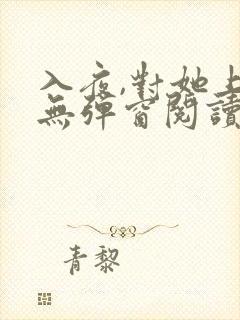 入夜,對她上
無彈窗閱讀
青黎